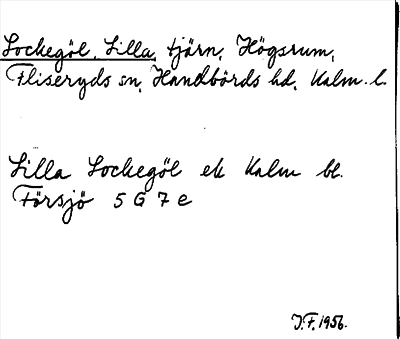 Sockegöl, Lilla, tjärn, Högsrum,
Fliseryds sn, Handbörds hd, Kalm. l.
Lilla Sockegöl ek Kalm bl.
Försjö 5 G 7 e
J.F. 1956.